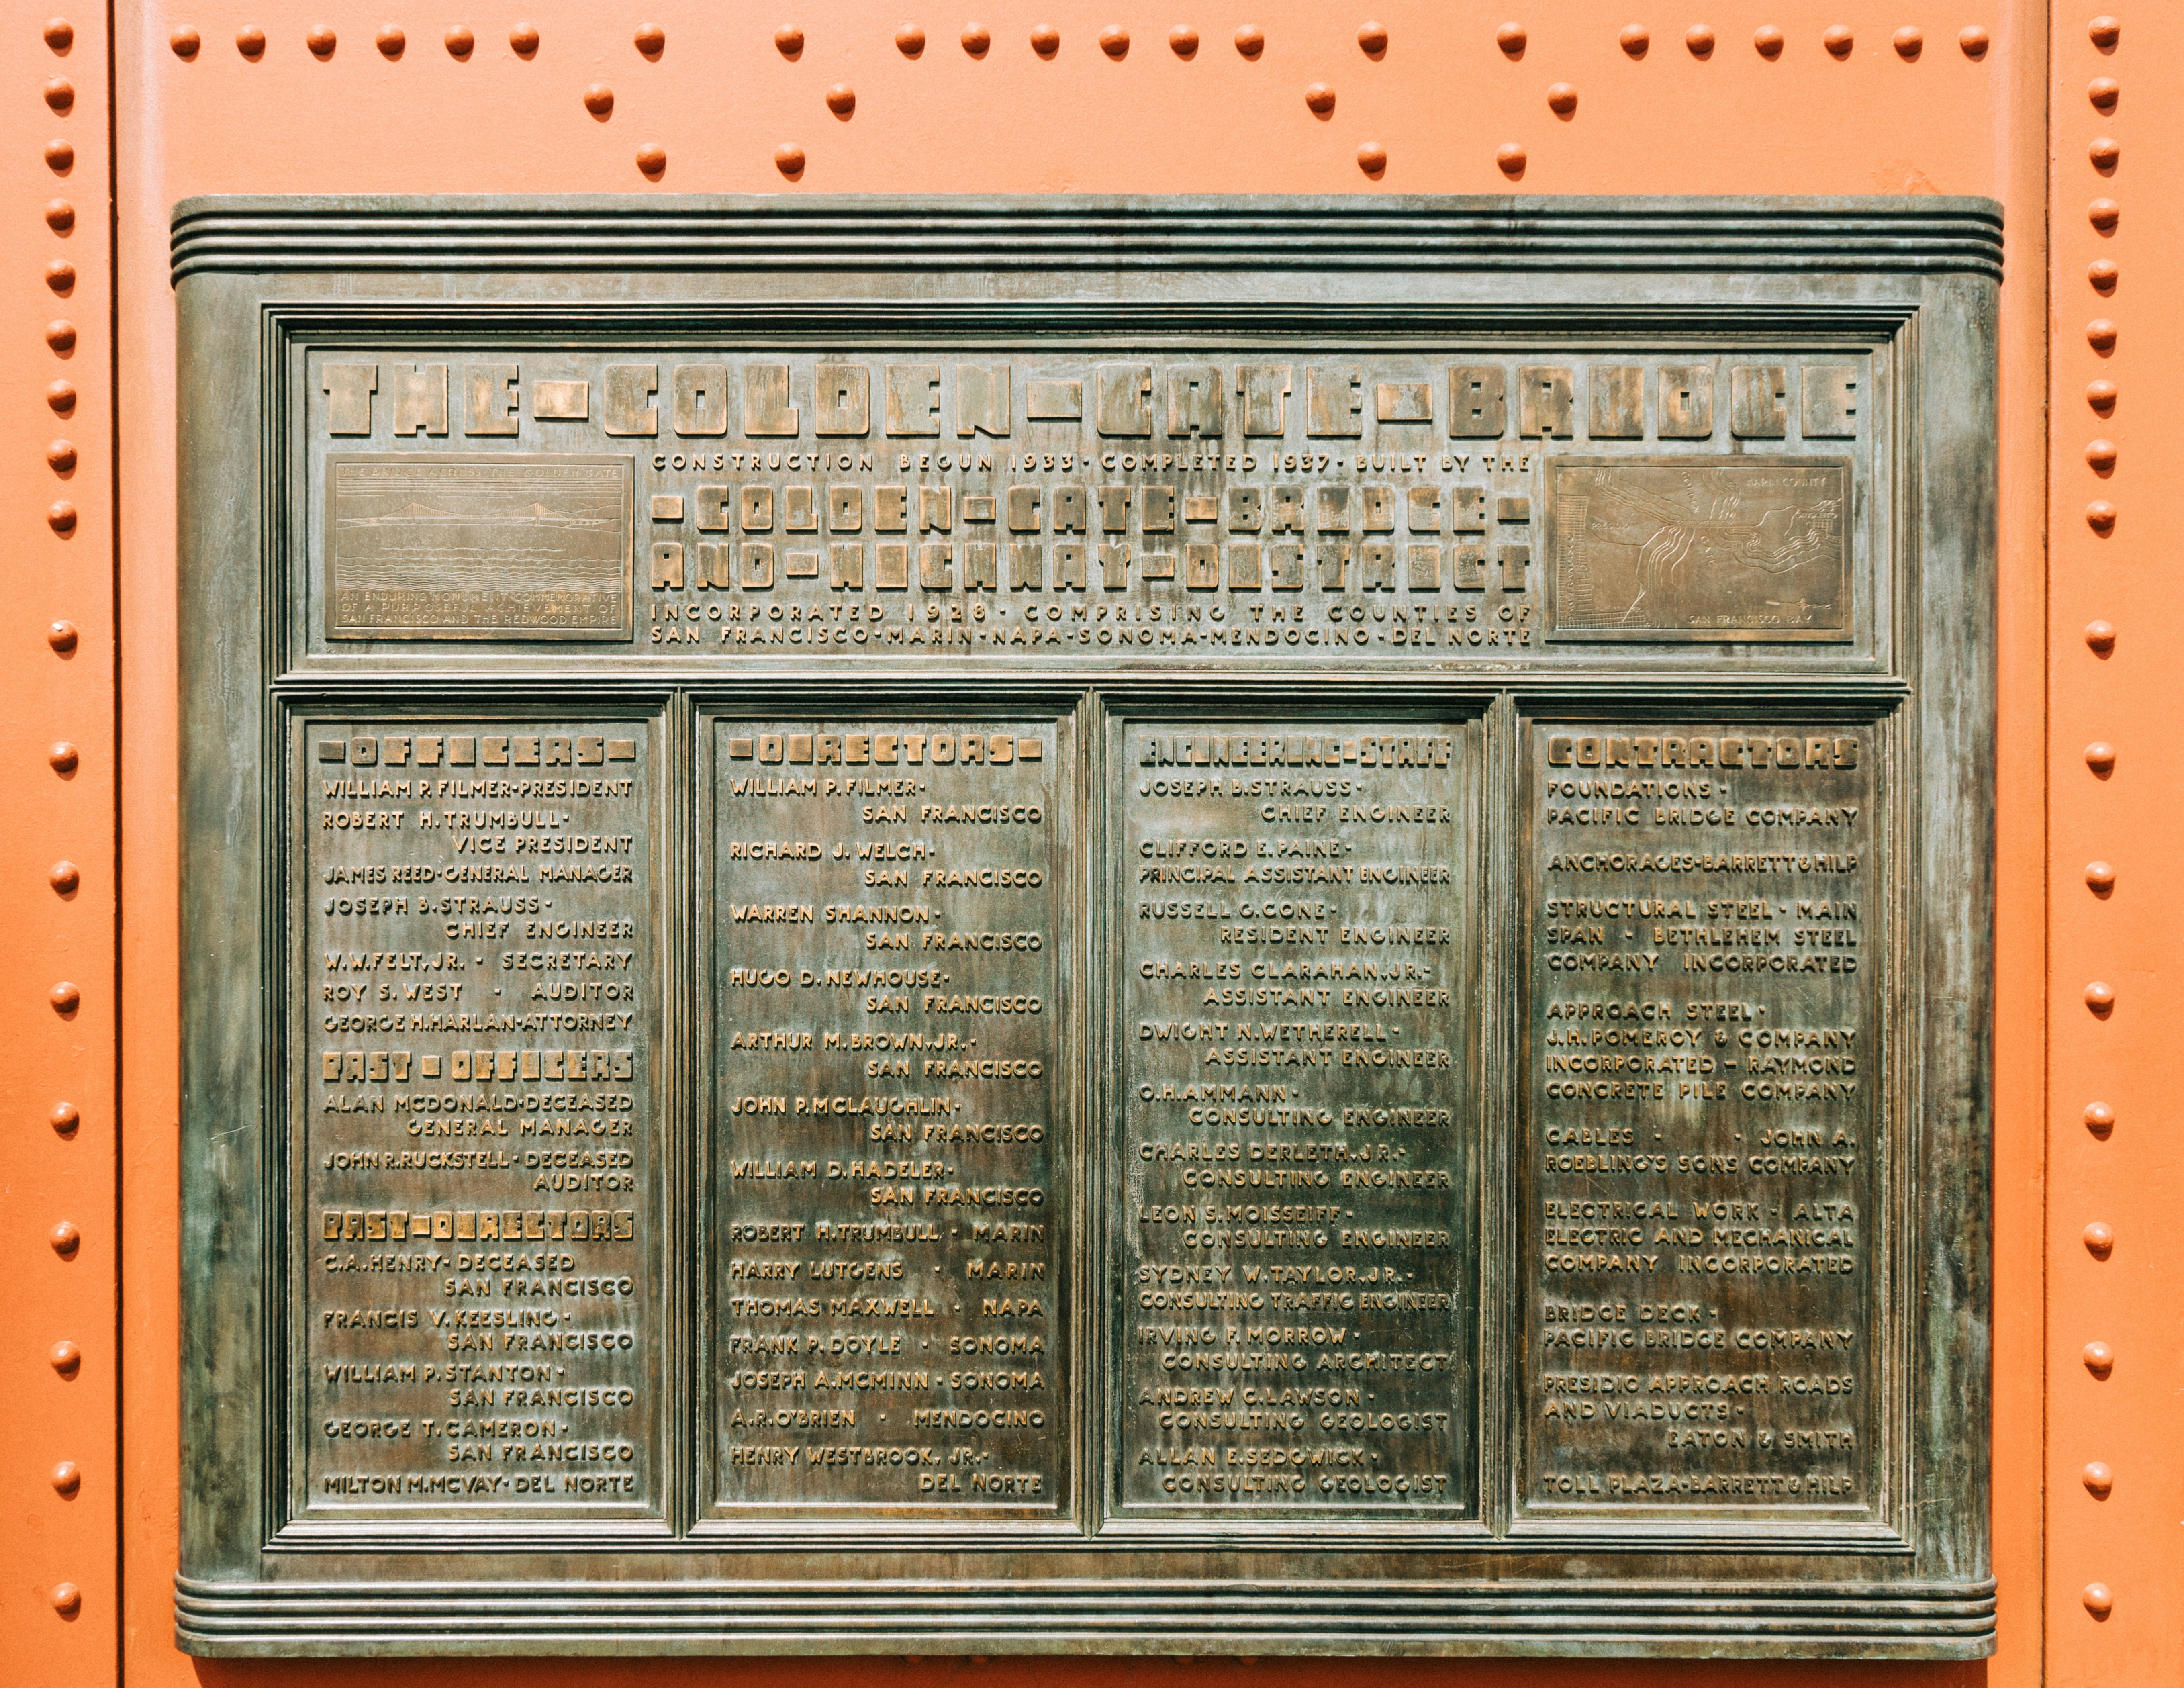 THE-GOLDEN-GATE-BRIDGE
THE BRIDGE ACROSS THE GOLDEN GATE
AN ENDURING MONUMENT COMMEMORATIVE
OF A PURPOSEFUL ACHIEVEMENT OF
SAN FRANCISCO AND THE REDWOOD EMPIRE
CONSTRUCTION BEGUN 1933·COMPLETED 1937·BUILT BY THE
-GOLDEN-GATE-BRIDGE-
AND-HIGHWAY-DISTRICT
INCORPORATED 1928·COMPRISING THE COUNTIES OF
SAN FRANCISCO·MARIN·NAPA·SONOMA·MENDOCINO·DEL NORTE
MARIN COUNTY
SAN FRANCISCO BAY
-OFFICERS-
WILLIAM P. FILMER·PRESIDENT
ROBERT H. TRUMBULL·
VICE PRESIDENT
JAMES REED·GENERAL MANAGER
JOSEPH B. STRAUSS·
CHIEF ENGINEER
W.W.FELT, JR. · SECRETARY
ROY S. WEST · AUDITOR
GEORGE H.HARLAN·ATTORNEY
PAST-OFFICERS
ALAN MCDONALD·DECEASED
GENERAL MANAGER
JOHN R.RUCKSTELL·DECEASED
AUDITOR
PAST-DIRECTORS
C.A.HENRY·DECEASED
SAN FRANCISCO
FRANCIS V. KEESLING·
SAN FRANCISCO
WILLIAM P. STANTON·
SAN FRANCISCO
GEORGE T. CAMERON·
SAN FRANCISCO
MILTON M.MCVAY·DEL NORTE
-DIRECTORS-
WILLIAM P. FILMER·
SAN FRANCISCO
RICHARD J. WELCH·
SAN FRANCISCO
WARREN SHANNON·
SAN FRANCISCO
HUGO D. NEWHOUSE·
SAN FRANCISCO
ARTHUR M. BROWN, JR.·
SAN FRANCISCO
JOHN P. MCLAUGHLIN·
SAN FRANCISCO
WILLIAM D. HADELER·
SAN FRANCISCO
ROBERT H. TRUMBULL · MARIN
HARRY LUTGENS · MARIN
THOMAS MAXWELL · NAPA
FRANK P. DOYLE · SONOMA
JOSEPH A. MCMINN · SONOMA
A.R. O'BRIEN · MENDOCINO
HENRY WESTBROOK, JR.·
DEL NORTE
ENGINEERING-STAFF
JOSEPH B. STRAUSS·
CHIEF ENGINEER
CLIFFORD E. PAINE·
PRINCIPAL ASSISTANT ENGINEER
RUSSELL G. CONE·
RESIDENT ENGINEER
CHARLES CLARAHAN, JR.·
ASSISTANT ENGINEER
DWIGHT N. WETHERELL·
ASSISTANT ENGINEER
O.H. AMMANN·
CONSULTING ENGINEER
CHARLES DERLETH, JR.·
CONSULTING ENGINEER
LEON S. MOISSEIFF·
CONSULTING ENGINEER
SYDNEY W. TAYLOR, JR.·
CONSULTING TRAFFIC ENGINEER
IRVING F. MORROW·
CONSULTING ARCHITECT
ANDREW C. LAWSON·
CONSULTING GEOLOGIST
ALLAN E. SEDGWICK·
CONSULTING GEOLOGIST
CONTRACTORS
FOUNDATIONS·
PACIFIC BRIDGE COMPANY
ANCHORAGES·BARRETT & HILP
STRUCTURAL STEEL·MAIN
SPAN · BETHLEHEM STEEL
COMPANY INCORPORATED
APPROACH STEEL·
J.H. POMEROY & COMPANY
INCORPORATED - RAYMOND
CONCRETE PILE COMPANY
CABLES · · JOHN A.
ROEBLING'S SONS COMPANY
ELECTRICAL WORK · ALTA
ELECTRIC AND MECHANICAL
COMPANY INCORPORATED
BRIDGE DECK·
PACIFIC BRIDGE COMPANY
PRESIDIO APPROACH ROADS
AND VIADUCTS·
EATON & SMITH
TOLL PLAZA·BARRETT & HILP